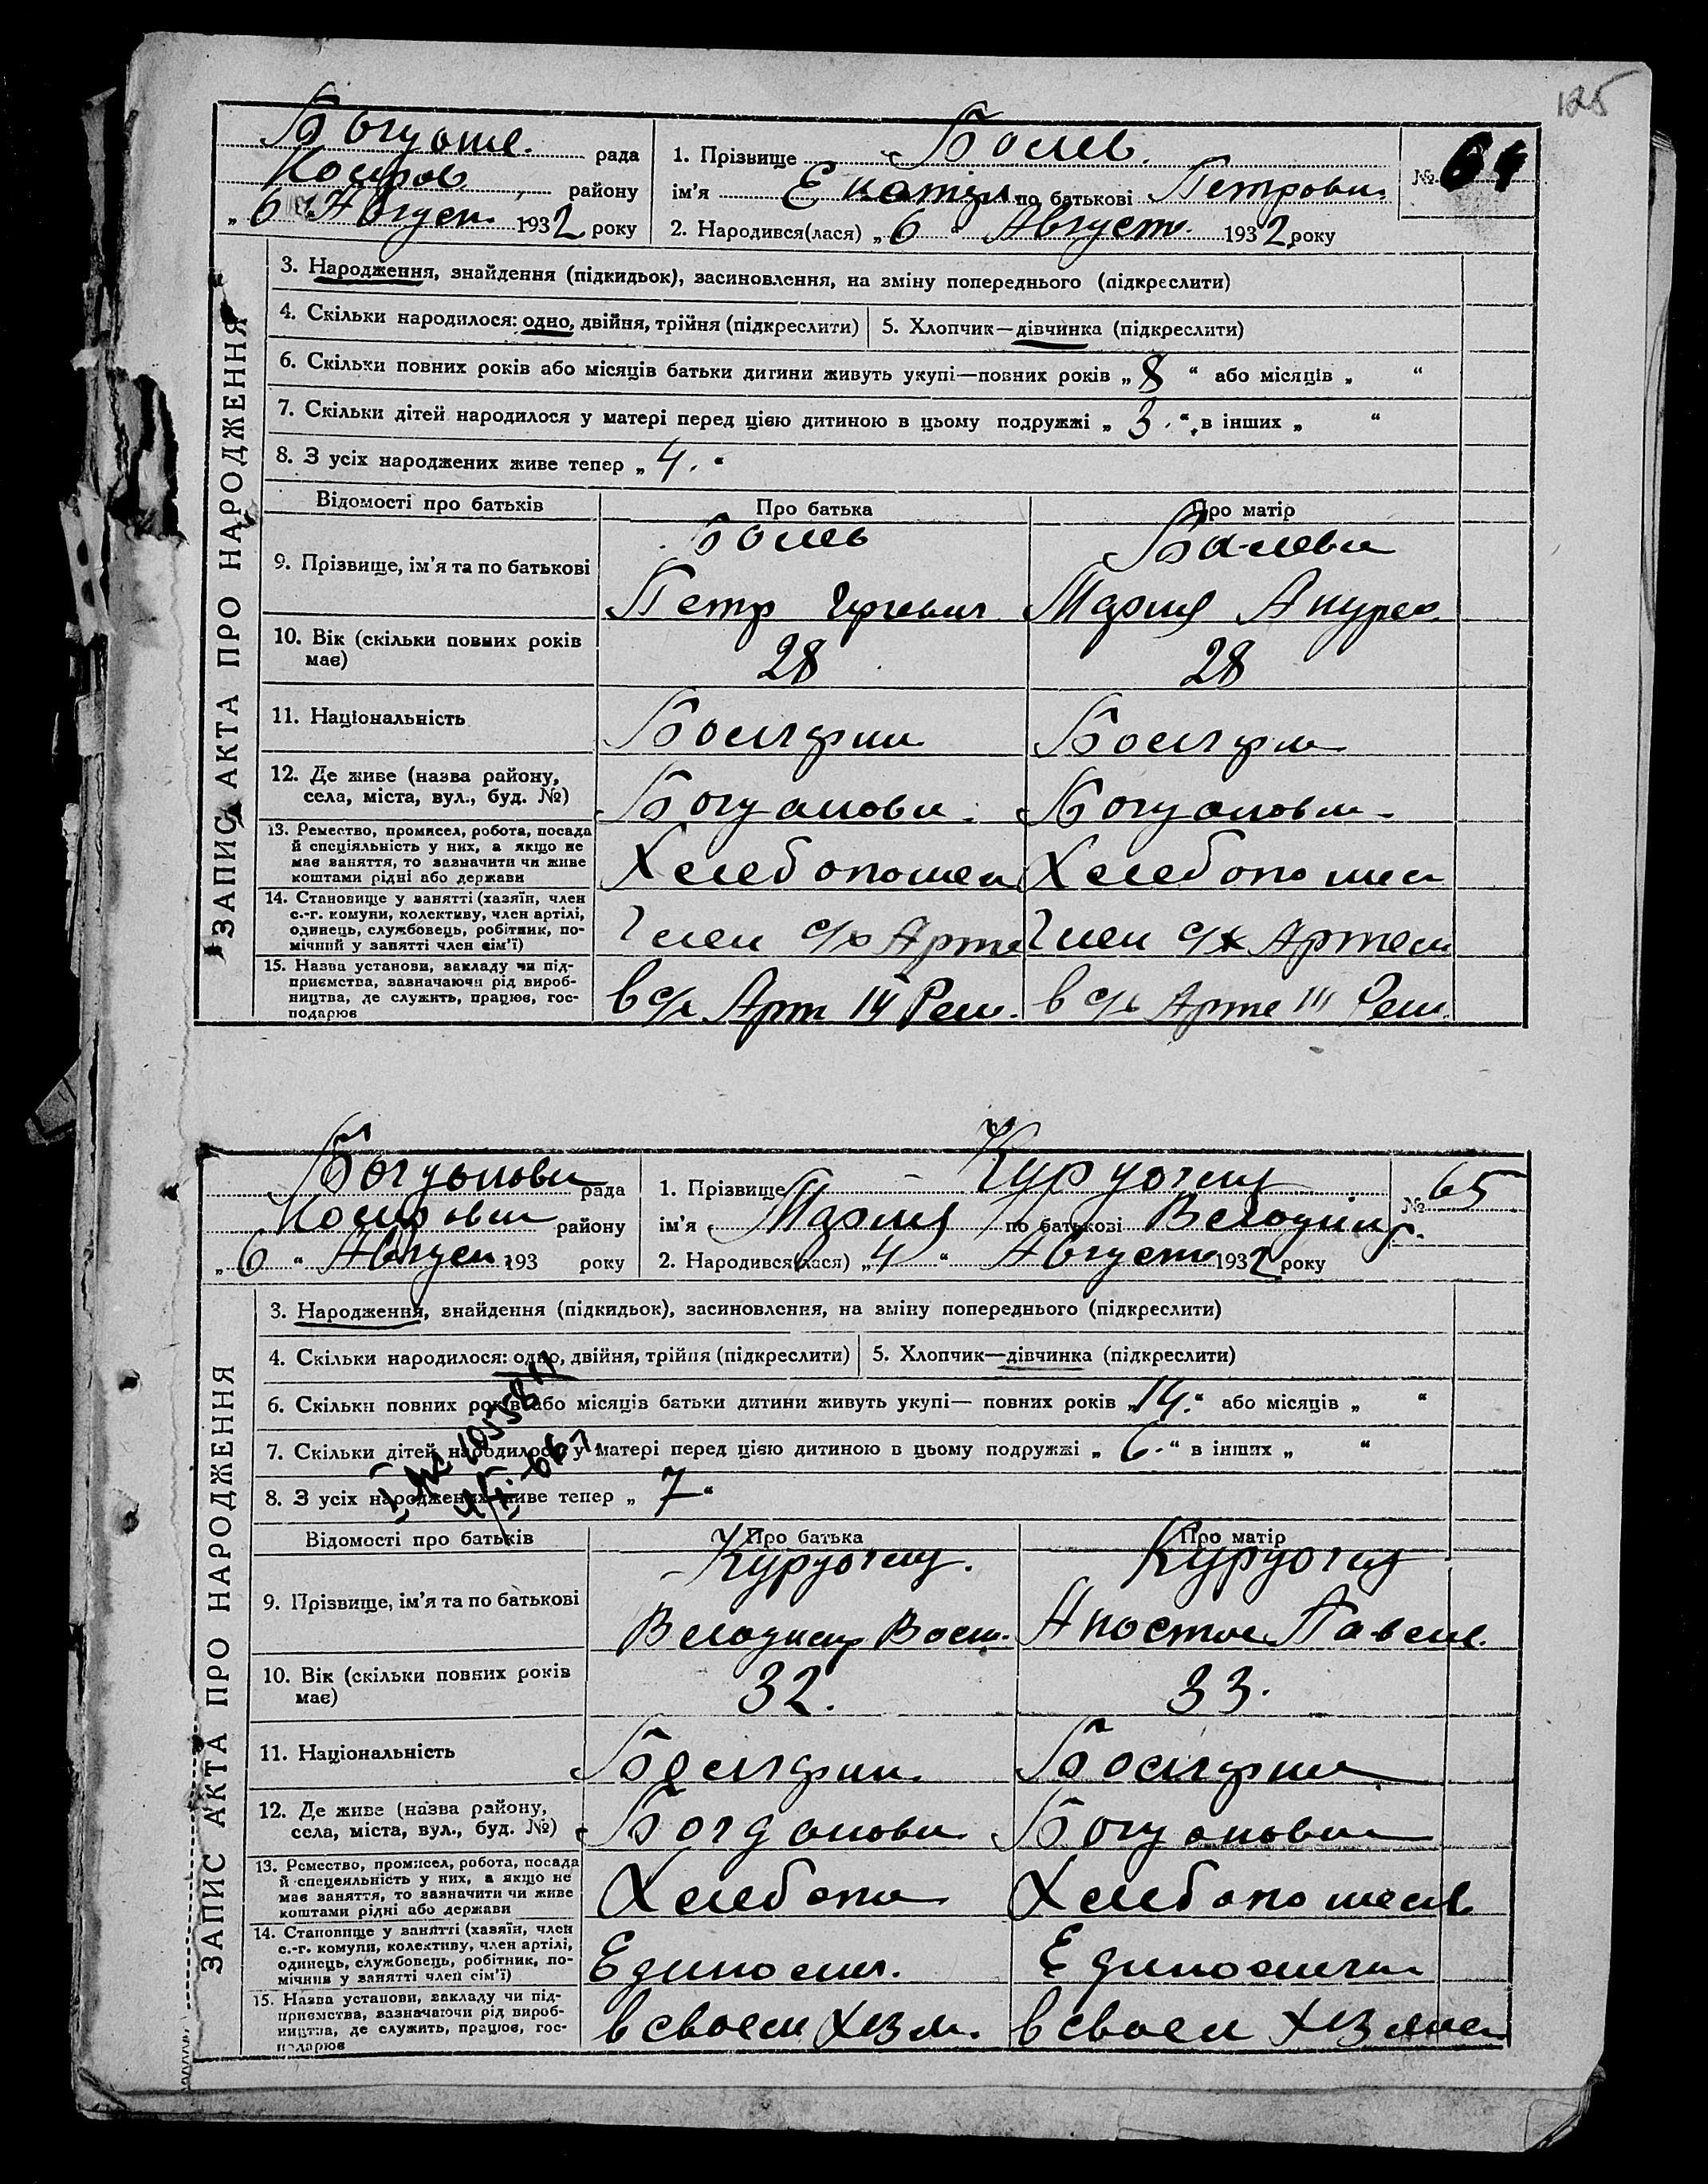 125
Богдане. рада
району
„ 6 “ Август. 1932 року
1. Прізвище Балев.
ім'я Екатер по батькові Петровн.
№ 64
2. Народився(лася) „ 6 “ Август. 1932 року
ЗАПИС АКТА ПРО НАРОДЖЕННЯ
3. Народження, знайдення (підкидьок), засиновлення, на зміну попереднього (підкреслити)
4. Скільки народилося: одно, двійня, трійня (підкреслити)
5. Хлопчик—дівчинка (підкреслити)
6. Скільки повних років або місяців батьки дитини живуть укупі—повних років „ 8 “ або місяців „ “
7. Скільки дітей народилося у матері перед цією дитиною в цьому подружжі „ 3. “, в інших „ “
8. З усіх народжених живе тепер „ 4. “
Відомості про батьків
Про батька
Про матір
9. Прізвище, ім'я та по батькові
Балев
Петр
Балева
Мария
10. Вік (скільки повних років має)
28
28
11. Національність
Болгарин
Болгарк
12. Де живе (назва району, села, міста, вул., буд. №)
Богдановк.
Богдановк.
13. Ремество, промисел, робота, посада
й спеціяльність у них, а якщо не
має заняття, то зазначити чи живе
коштами рідні або держави
Хлебопашец
Хлебопашец
14. Становище у занятті (хазяїн, член
с.-г. комуни, колективу, член артілі,
одинець, службовець, робітник, по-
мічний у занятті член сім'ї)
член с/х Арте
член с/х Артели
15. Назва установи, закладу чи під-
приємства, зазначаючи рід вироб-
ництва, де служить, працює, гос-
подарює
в с/х Арт Реш.
в с/х Арте III Реш.
Богдановк рада
району
„ 6 “ Август 193 року
1. Прізвище Курдогло
ім'я Мария по батькові Владимир.
№ 65
2. Народився(лася) „ 4 “ Август 1932 року
ЗАПИС АКТА ПРО НАРОДЖЕННЯ
3. Народження, знайдення (підкидьок), засиновлення, на зміну попереднього (підкреслити)
4. Скільки народилося: одно, двійня, трійня (підкреслити)
5. Хлопчик—дівчинка (підкреслити)
6. Скільки повних років або місяців батьки дитини живуть укупі— повних років „ 14. “ або місяців „ “
7. Скільки дітей народилося у матері перед цією дитиною в цьому подружжі „ 6. “ в інших „ “
8. З усіх народжених живе тепер „ 7 “
Відомості про батьків
Про батька
Про матір
9. Прізвище, ім'я та по батькові
Курдогло.
Владимир Васил.
Курдогло
Анастас Павлов.
10. Вік (скільки повних років має)
32.
33.
11. Національність
Болгарин.
Болгарка
12. Де живе (назва району, села, міста, вул., буд. №)
Богдановк
Богдановка
13. Ремество, промисел, робота, посада
й спецеяльність у них, а якщо не
має заняття, то зазначити чи живе
коштами рідні або держави
Хлебопа
Хлебопашец
14. Становище у занятті (хазяїн, член
с.-г. комуни, колективу, член артілі,
одинець, службовець, робітник, по-
мічний у занятті член сім'ї)
Единолич.
Единолична
15. Назва установи, закладу чи під-
приємства, зазначаючи рід вироб-
ництва, де служить, працює, гос-
подарює
в своем
в своем